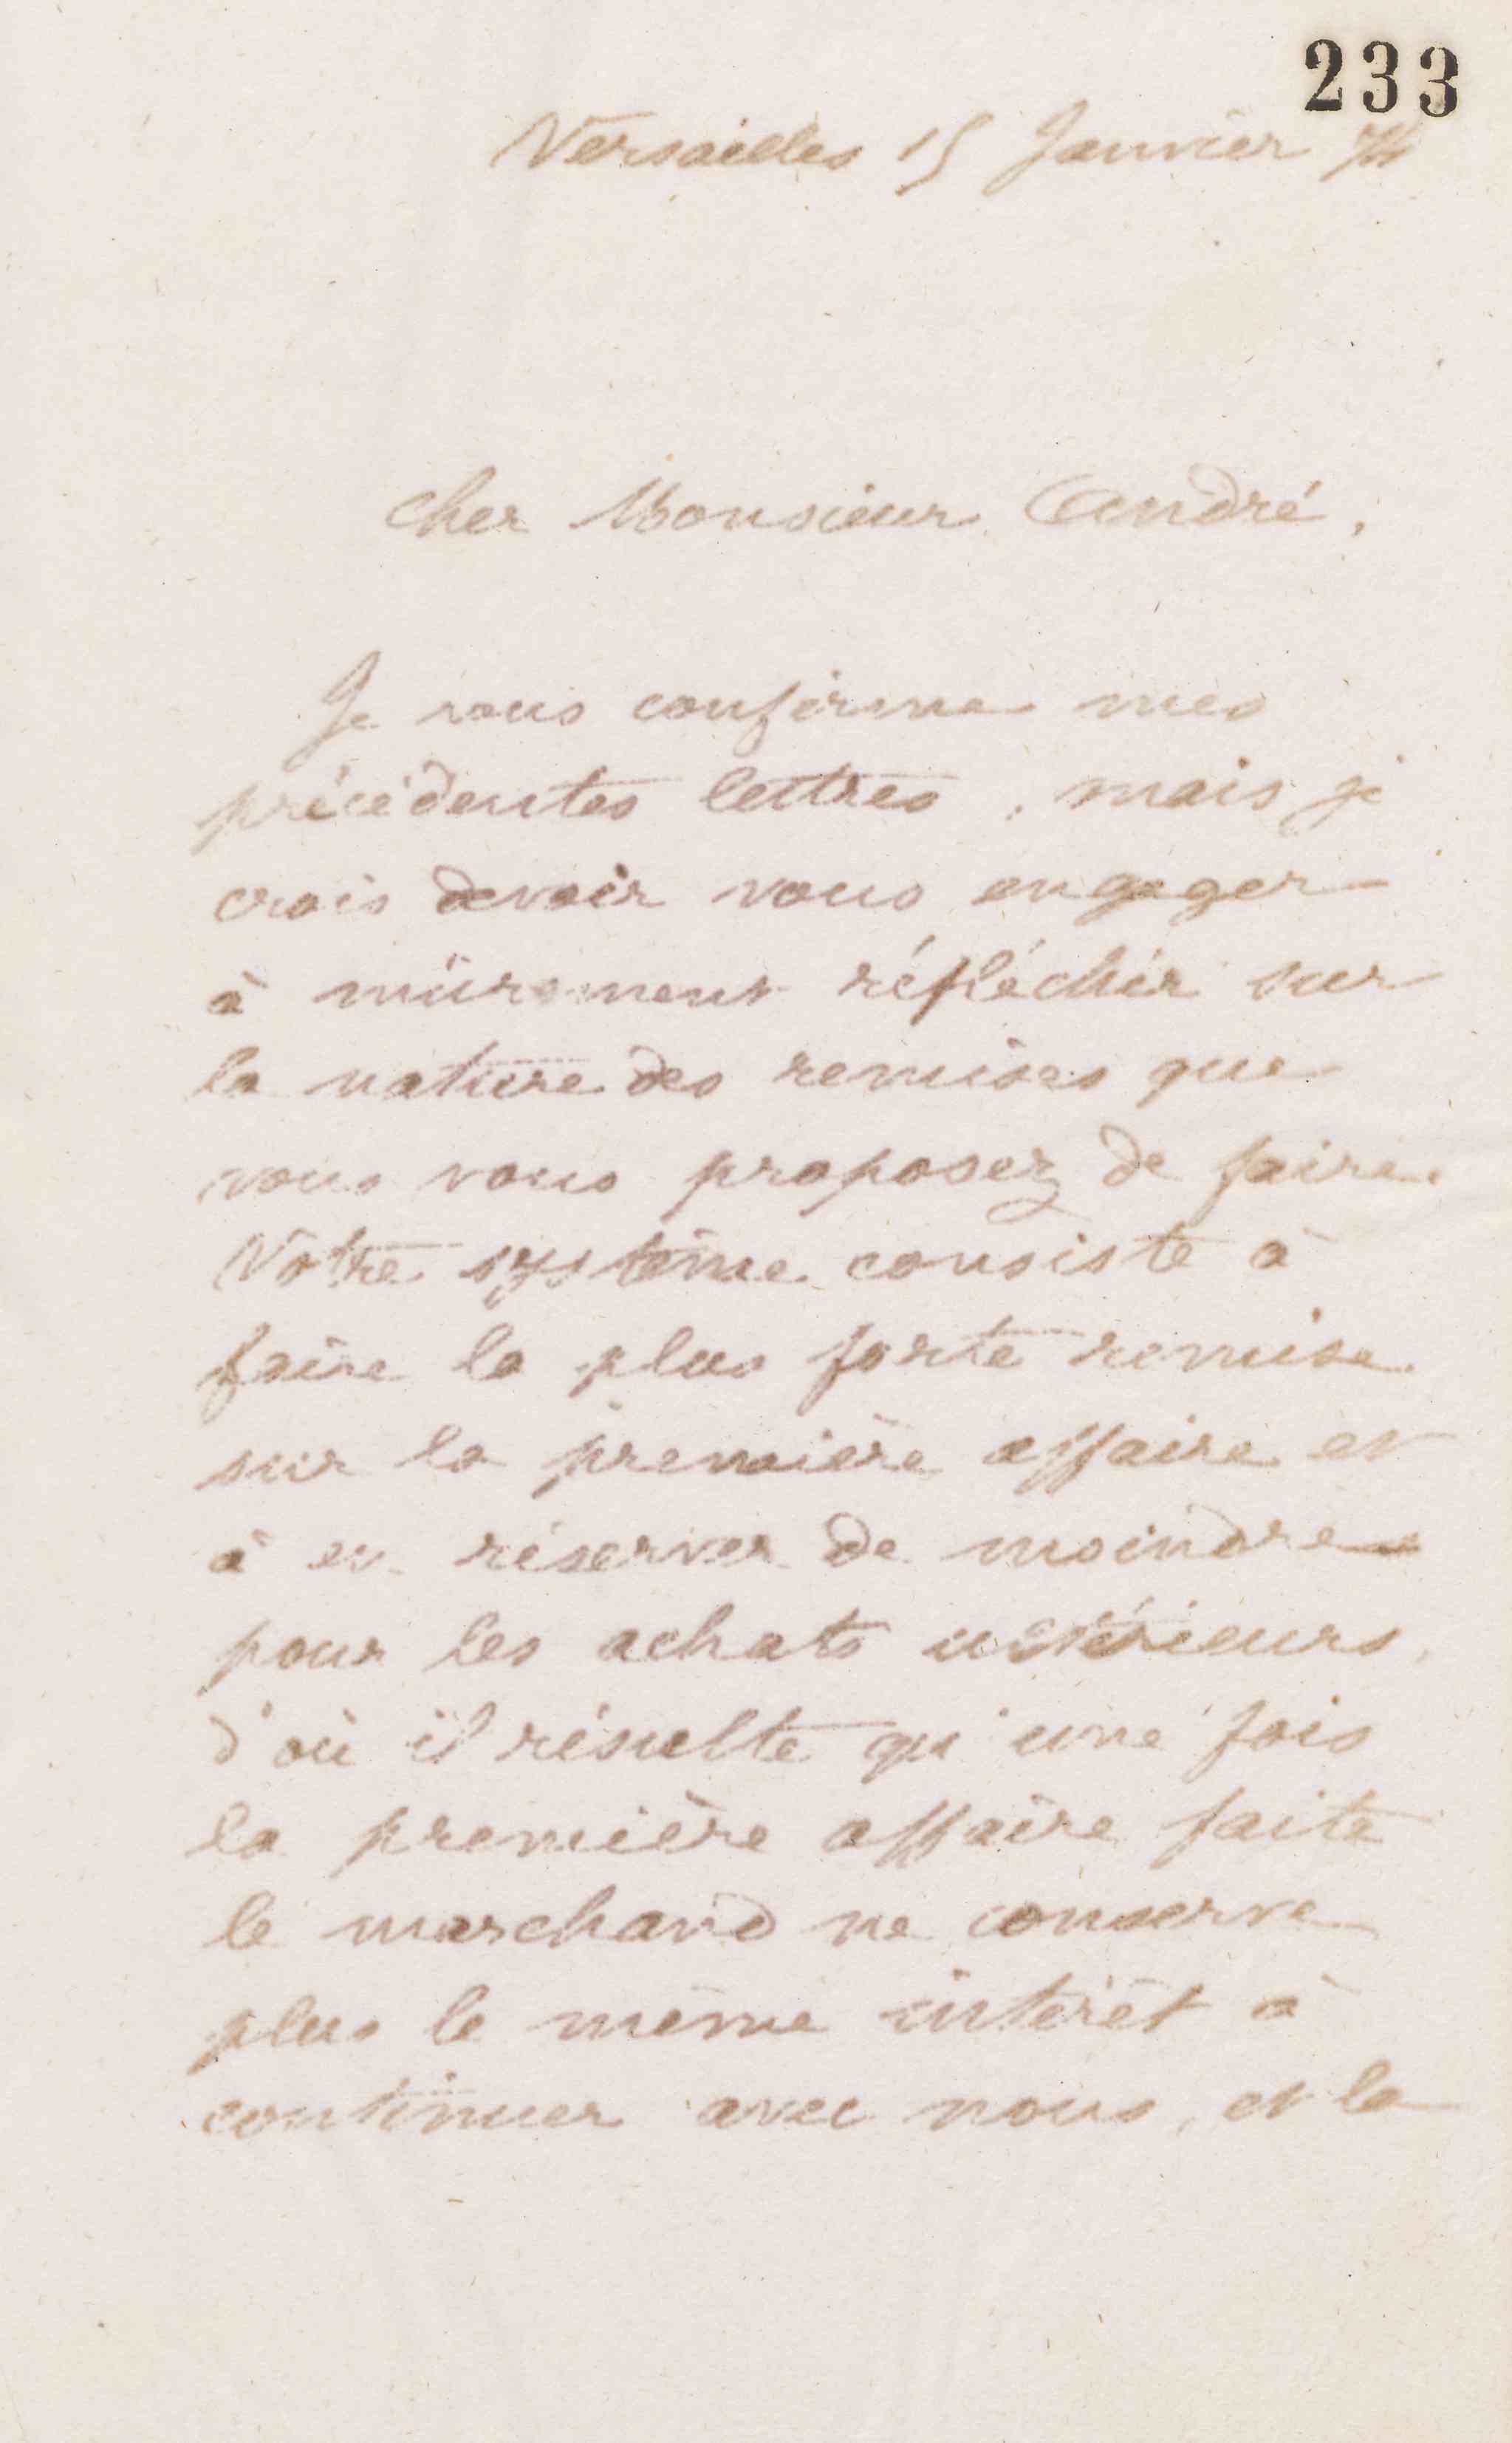 233
Versailles 15 Janvier 74
Cher Monsieur André,
Je vous confirme mes
précédentes lettres, mais je
crois devoir vous engager
à mûrement réfléchir sur
la nature des remises que
vous vous proposez de faire.
Votre système consiste à
faire la plus forte remise
sur la première affaire et
à en réserver de moindres
pour les achats ultérieurs,
d'où il résulte qu'une fois
la première affaire faite
le marchand ne conserve
plus le même intérêt à
continuer avec nous, et la